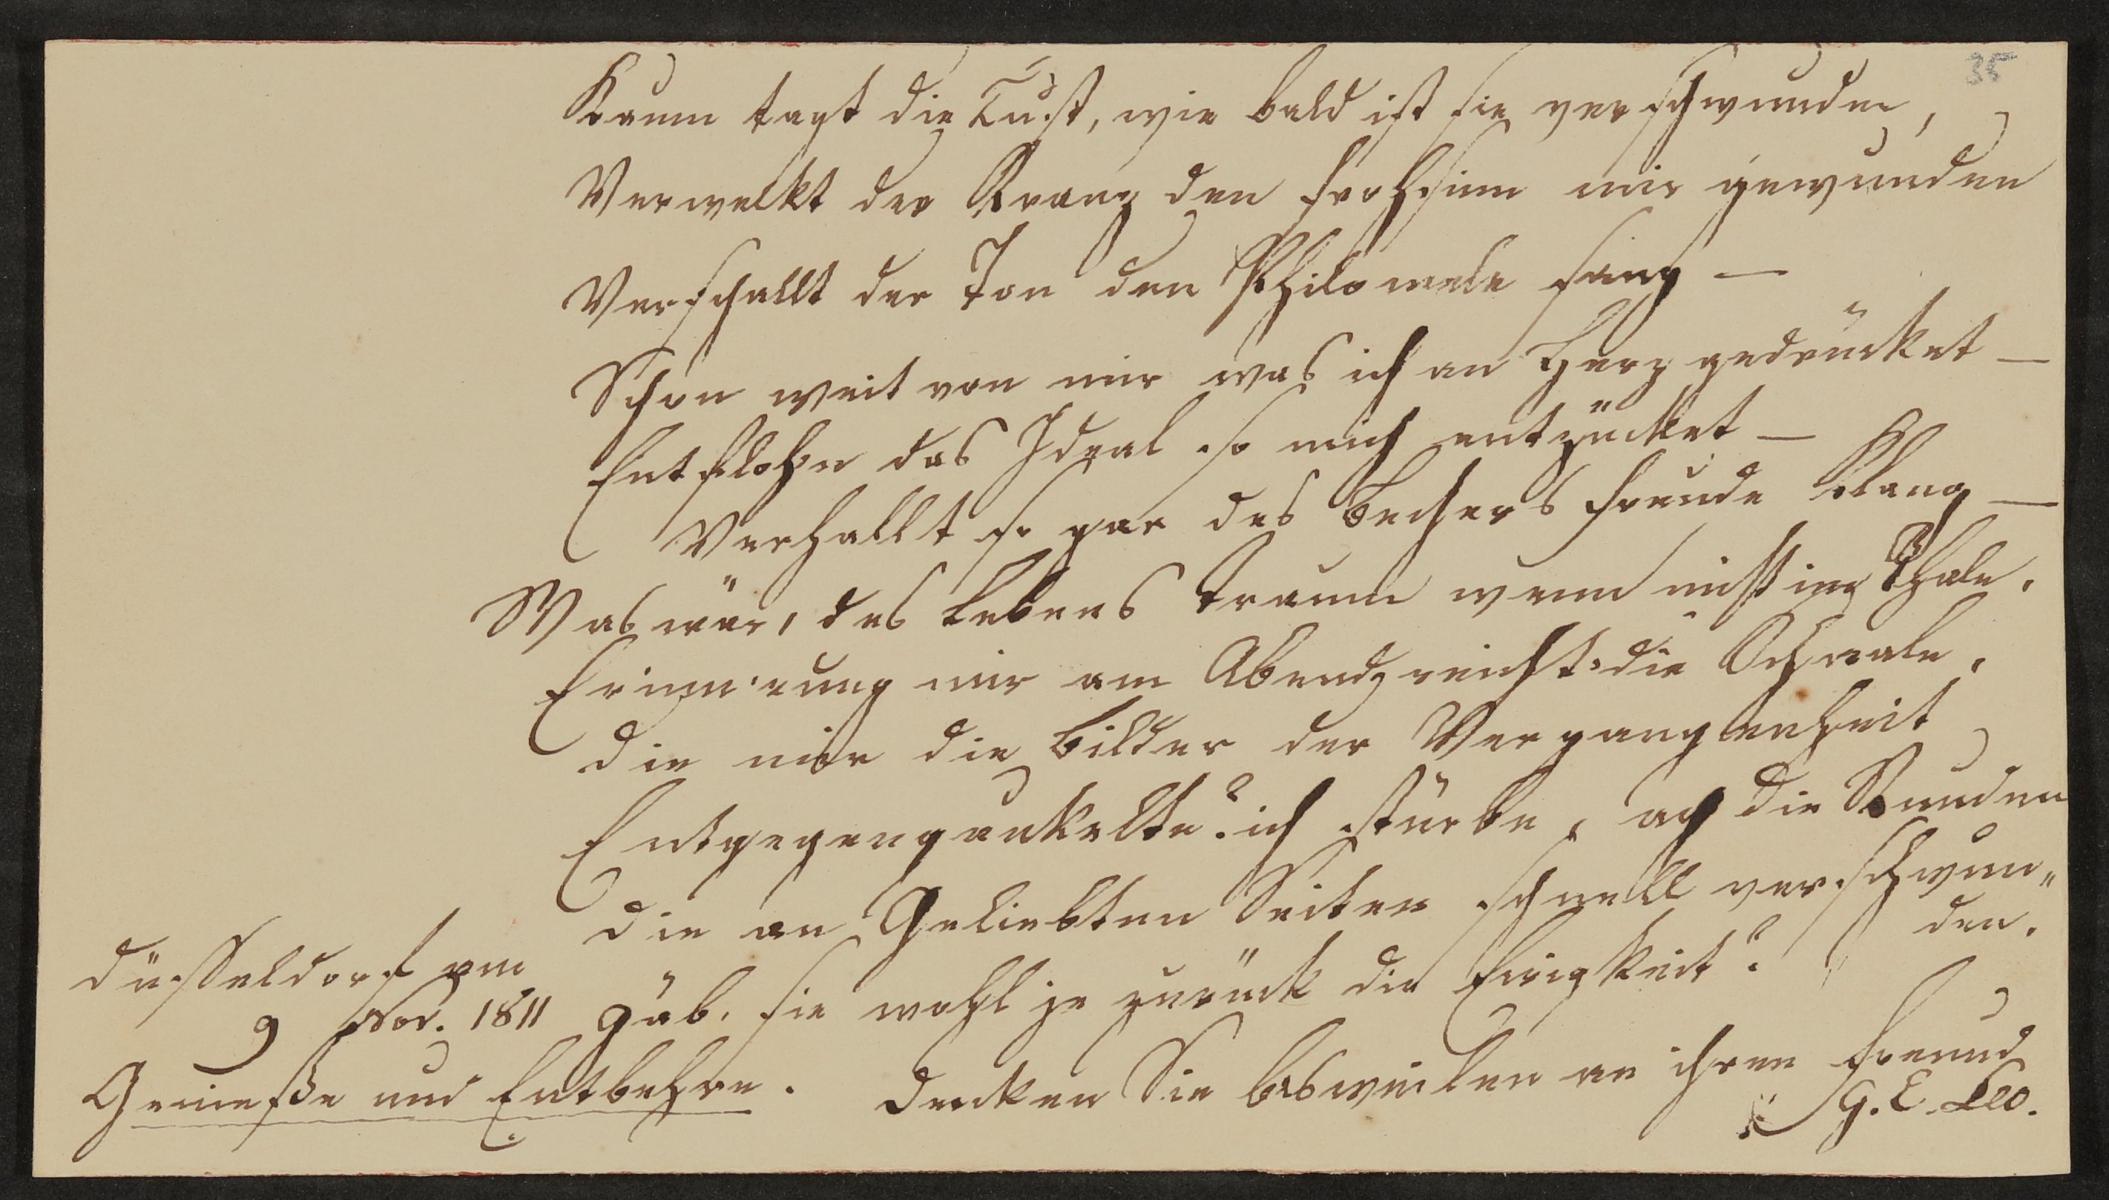 35
Kaum tagt die Lust, wie bald ist sie verschwunden,
Verwelkt der Kranz den Frohsinn mir gewunden
Verschallt der Ton den Philomele sang —
Schon weit von mir was ich an Herz gedrücket —
Entflohn das Ideal so mich entzücket —
Verhallt so gar des Bechers Freude Klang —
Was wär, des Lebens Traum wenn nicht im Thale,
Erinnerung mir am Abend reicht die Schaale,
die mir die Bilder der Vergangenheit
Entgegengaukelte? ich stürbe, ach die Stunden
die an Geliebten Seiten schnell verschwun„
den.
Gäb, sie wohl je zurück die Ewigkeit?
Düsseldorf am
9 Nov. 1811
Genieße und Entbehre.
Denken Sie bisweilen an ihren Freund
G. E. Leo.